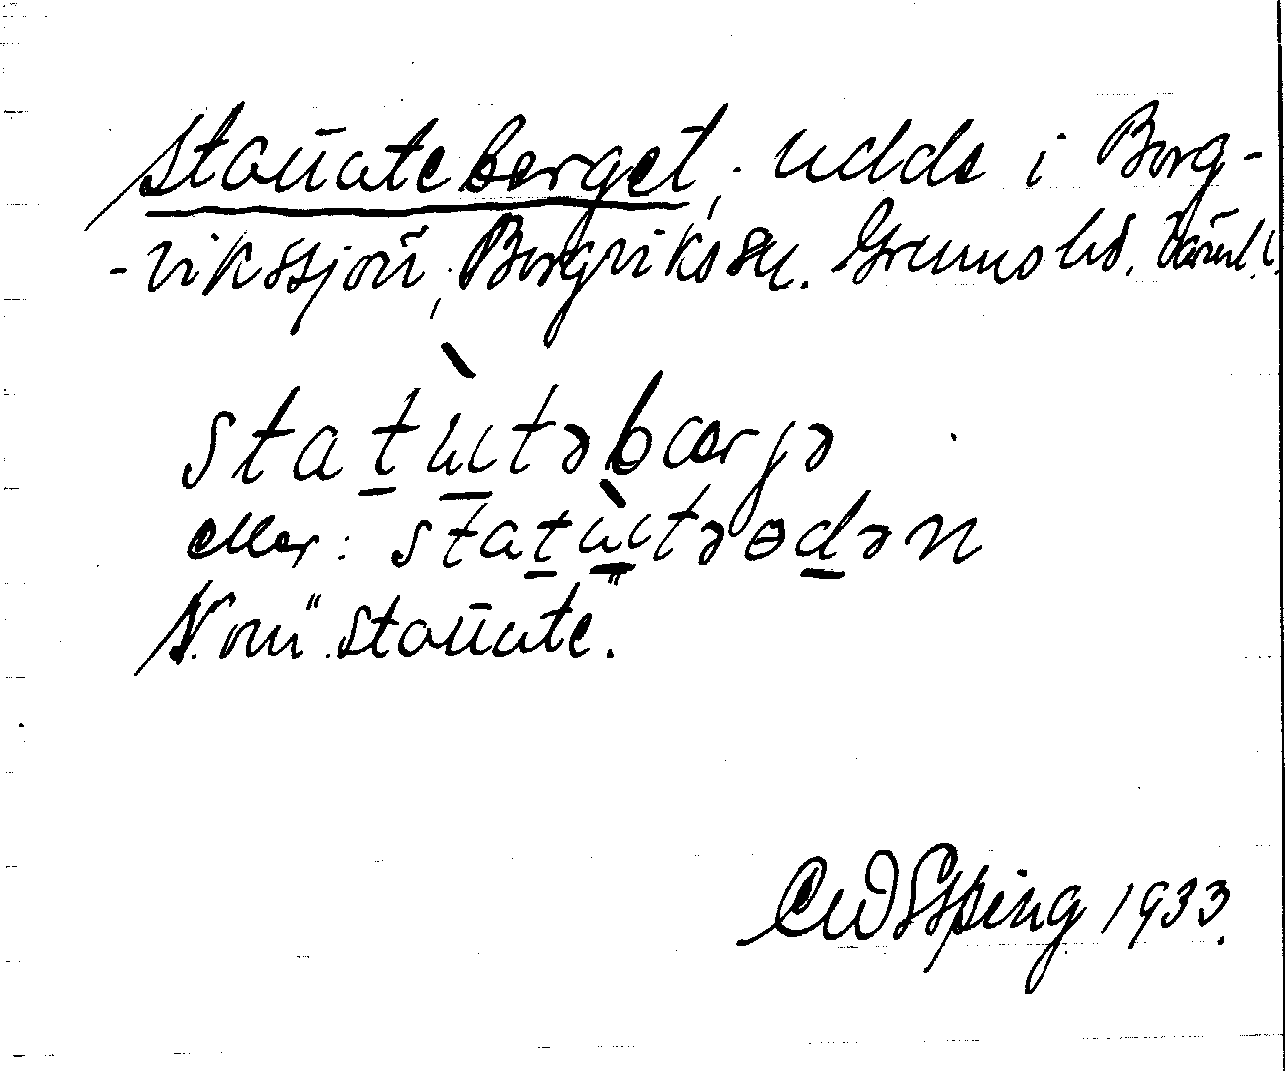 Statuteberget, udde i Borg-
-vikssjön, Borgviks sn. Grums hd. Värml. l.
statu̠təbærjə
eller: statu̠təɵdən
N. om "Statute".
1933.